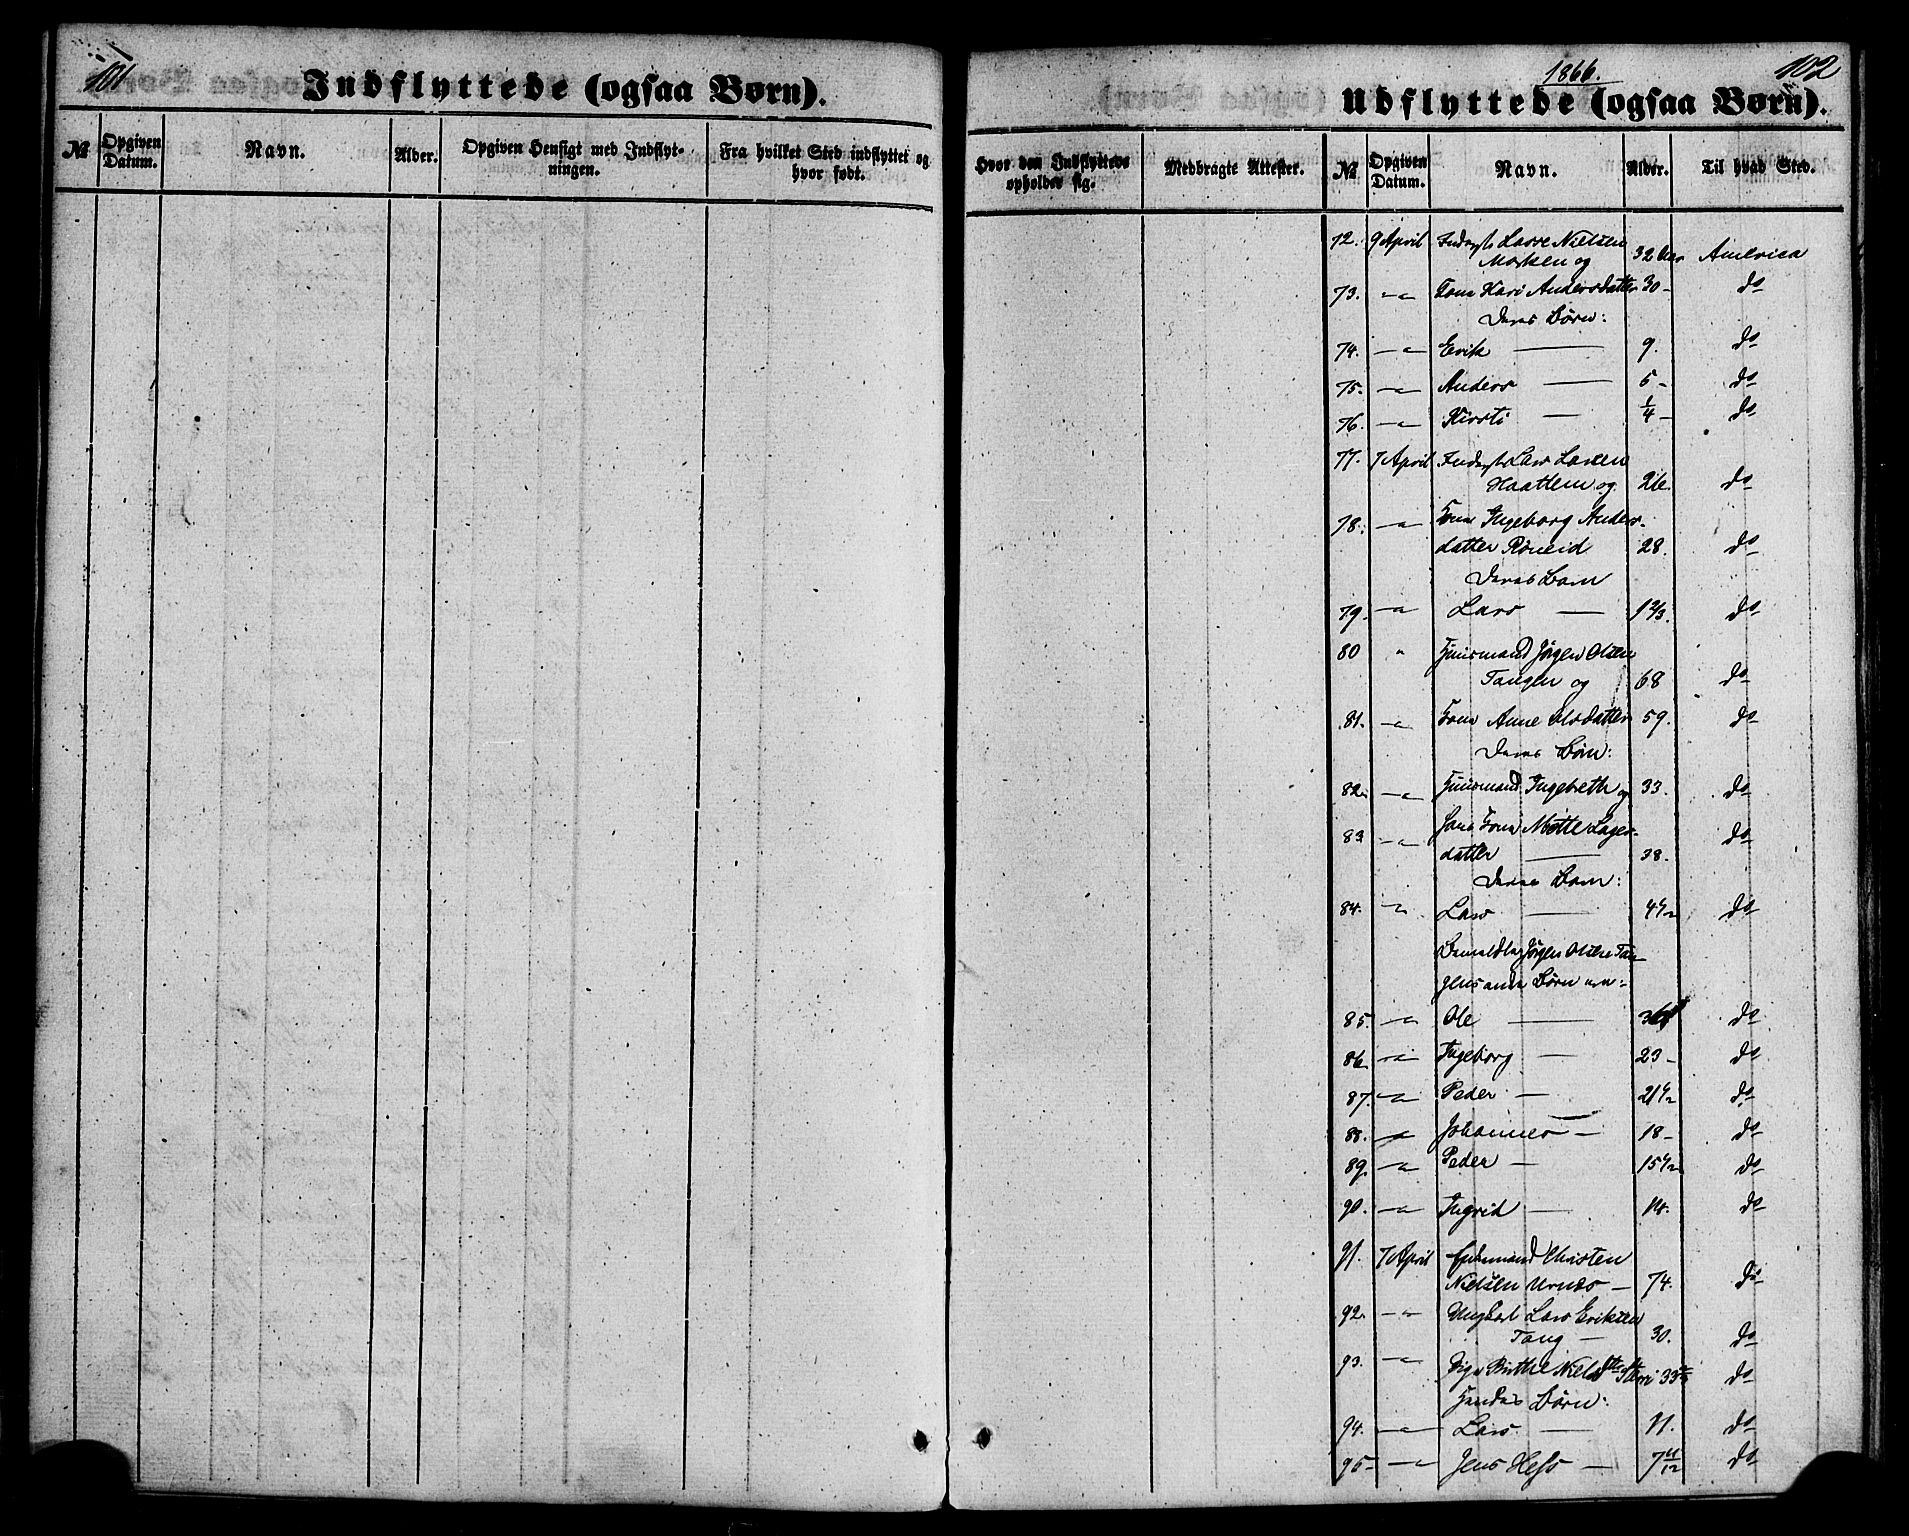 101
Indflyttede (ogsaa Børn).
№ Opgiven Datum. Navn. Alder. Opgiven Hensigt med Indflytningen. Fra hvilket Sted indflyttet og hvor født.
1866. 102
Udflyttede (ogsaa Børn).
Hvor den Indflyttede opholder sig. Medbragte Attester. № Opgiven Datum. Navn. Alder. Til hvad Sted.
72. 9 April Inderst Lasse Nielsen
Morken og 32 Aar America
73. -"- Kone Kari Andersdatter 30 - do
Deres Børn:
74. -"- Erik — 9. do
75. -"- Anders — 5 - do
76. -"- Kirsti — 1/4 - do
77. 7 April Inderst Lars Larsen
Haatlem og 26. do
78. -"- Kone Ingeborg Anders-
datter Røneid 28. do
Deres Barn
79. -"- Lars — 1 2/3. do
80 " Huusmand Jørgen Olsen
Tangen og 68 do
81. -"- Kone Anne Olsdatter 59. do
Deres Børn:
82. -"- Huusmand Ingebreth og 33. do
83 -"- hans Kone Mette Lasse-
datter — 38. do
Deres Barn:
84. " Lars — 4 1/2 do
Bemeldte Jørgen Olsen Tan-
gens andre Børn ere:
85. -"- Ole — do
86. -"- Ingeborg — 23 - do
87. -"- Peder — 21 1/2 do
88. -"- Johannes — 18 - do
89. -"- Peder — 15 1/2 do
90. -"- Ingrid — 14. do
91. 7 April Enkemand Christen
Nielsen Urnes — 74. do
92. -"- Ungkarl Lars Eriksen
Tang — 30. do
93. -"- Pige Birthe Nielsdtr 33 do
Hendes Børn:
94. -"- Lars — 11. do
95 - -"- Jens Hess — 7 11/12 do